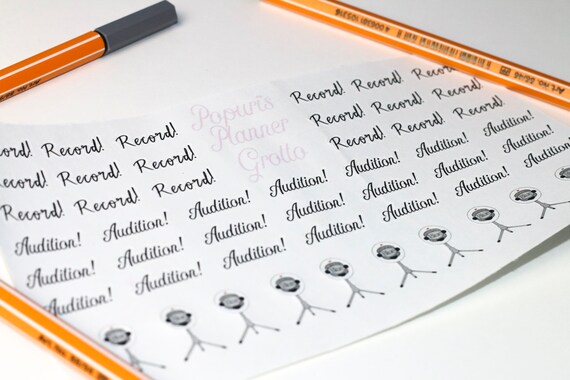 cord! Record! Record!
ecord! Record! Record!
Record! Record! Record!
Popuri's
Planner
Grotto
Record! Record! Recor
Record! Record! Record!
Record! Record! Record!
Audition! Audition! Audition! Audition! Audition! Audition! Audition!
Audition! Audition! Audition! Audition! Audition! Audition! Audition!
Audition! Audition! Audition! Audition! Audition! Audition! Audition!
Art.no.